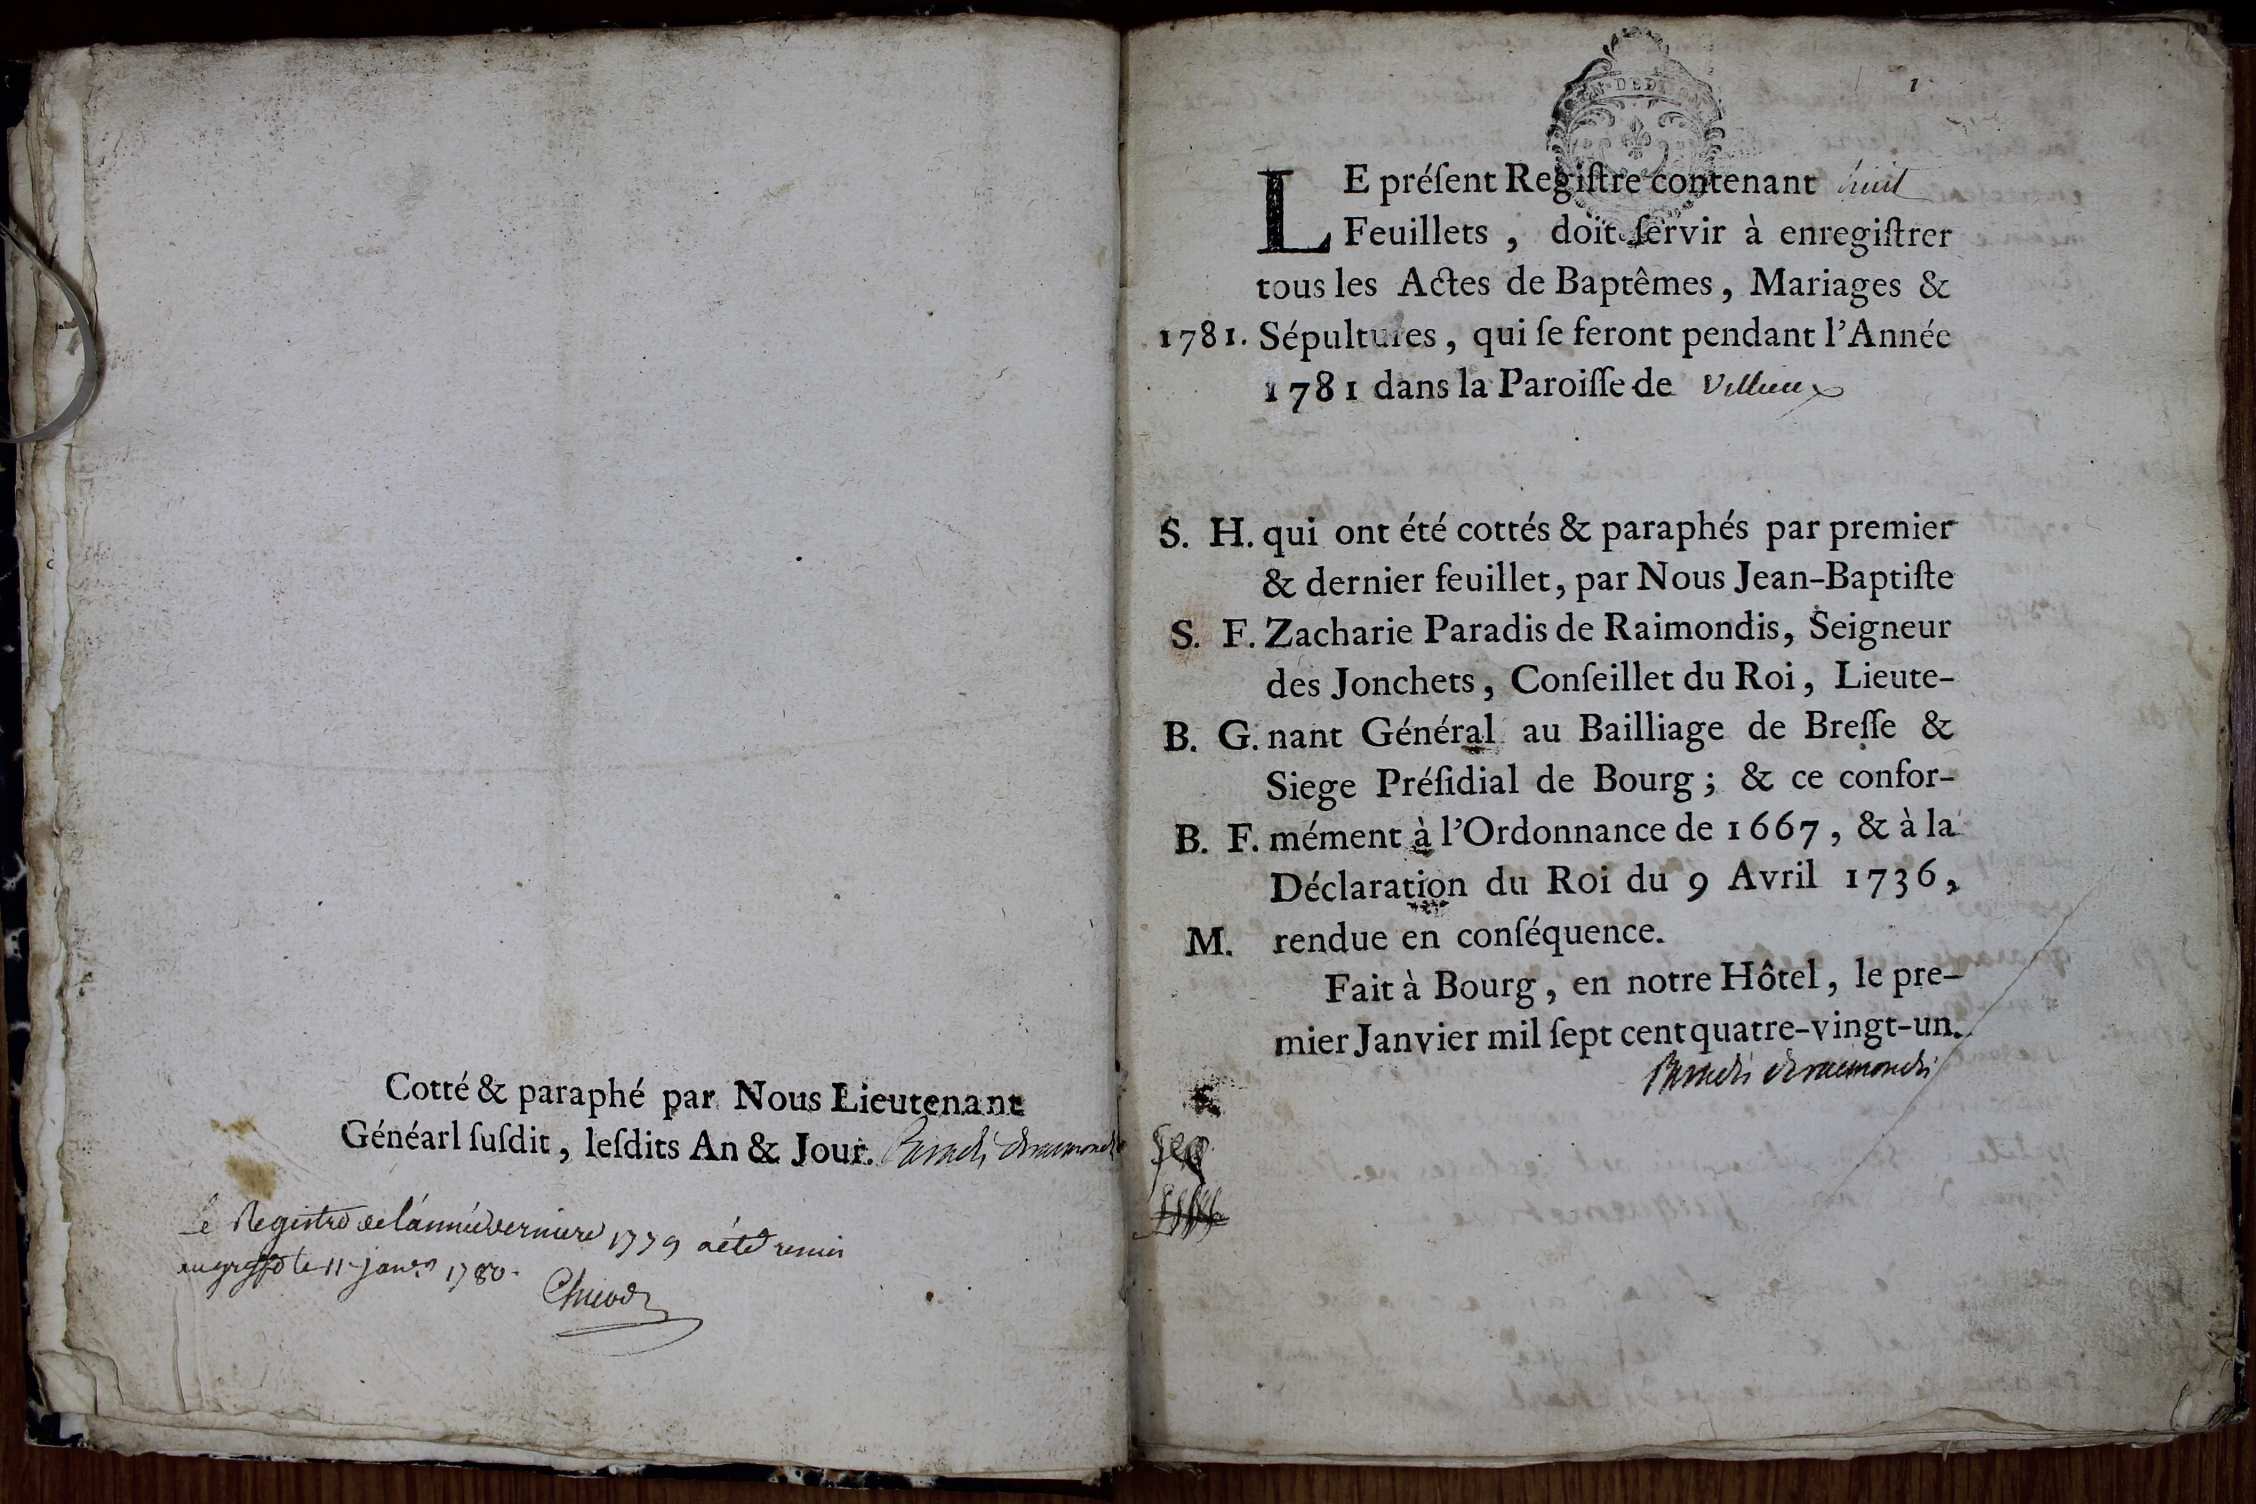 Cotté & paraphé par Nous Lieutenant
Généarl ſuſdit, leſdits An & Jour. Paradis deraimondis
Le Registre de l'année derniere 1779 a été remis
au greffe le 11 janer 1780.
1
LE préſent Regiſtre contenant huit
Feuillets, doit ſervir à enregiſtrer
tous les Actes de Baptêmes, Mariages &
1781. Sépultures, qui ſe feront pendant l'Année
1781 dans la Paroiſſe de Villieux
S. H. qui ont été cottés & paraphés par premier
& dernier feuillet, par Nous Jean-Baptiſte
S. F. Zacharie Paradis de Raimondis, Seigneur
des Jonchets, Conſeillet du Roi, Lieute-
B. G. nant Général au Bailliage de Breſſe &
Siege Préſidial de Bourg; & ce confor-
B. F. mément à l'Ordonnance de 1667, & à la
Déclaration du Roi du 9 Avril 1736,
M. rendue en conſéquence.
Fait à Bourg, en notre Hôtel, le pre-
mier Janvier mil ſept cent quatre-vingt-un.
Paradis deraimondis